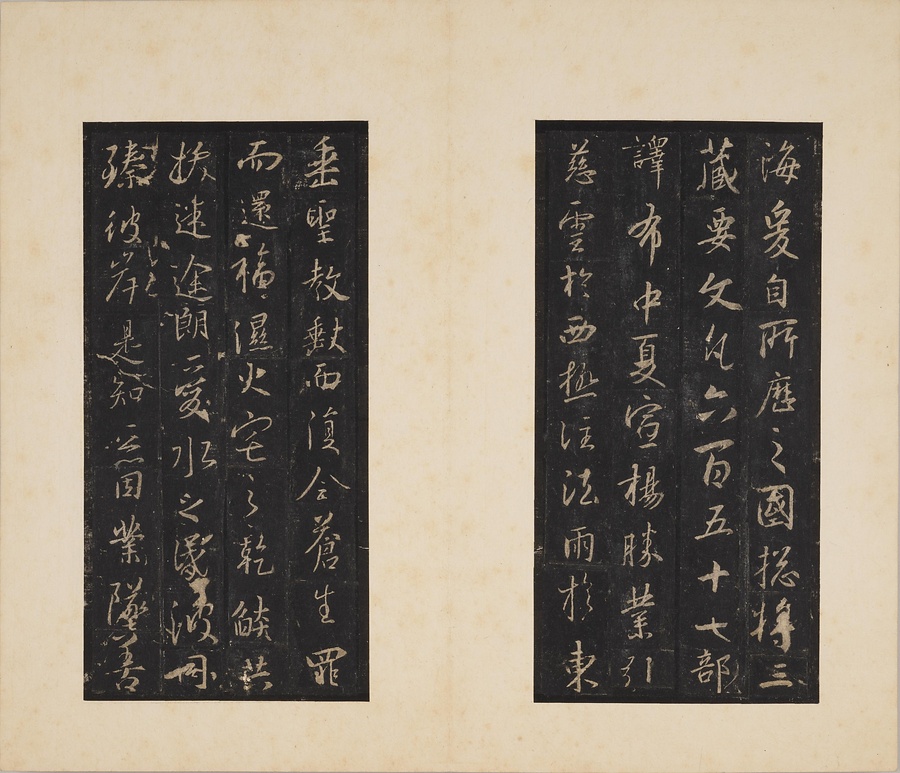 海爰自所歷之國揔將三
藏要文凡六百五十七部
譯布中夏宣楊勝業引
慈雲於西極注法雨於東
垂聖教缺而復全蒼生罪
而還福濕火宅之乾燄共
拔迷途朗愛水之昏波同
臻彼岸是知惡因業墜善